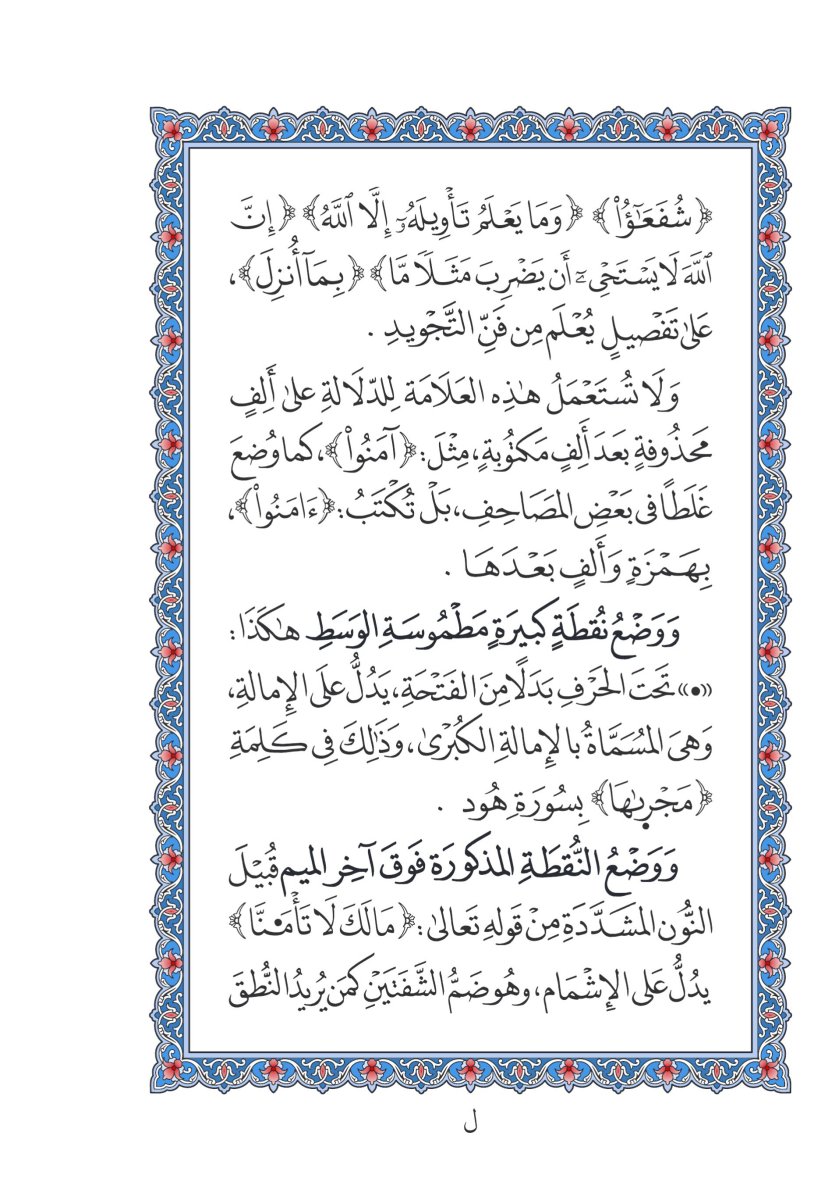 ﴿شُفَعَـٰٓؤُا۟﴾ ﴿وَمَا يَعْلَمُ تَأْوِيلَهُۥٓ إِلَّا ٱللَّهُ﴾ ﴿إِنَّ
ٱللَّهَ لَا يَسْتَحْىِۦٓ أَن يَضْرِبَ مَثَلًا مَّا﴾ ﴿بِمَآ أُنزِلَ﴾،
عَلىٰ تَفْصِيلٍ يُعْلَم مِن فَنِّ التَّجْوِيدِ .
وَلَا تُسْتَعْمَلُ هٰذِه العَلَامَة لِلدّلَالةِ علىٰ أَلِفٍ
مَحْذُوفةٍ بَعدَ أَلِفٍ مَكتُوبةٍ، مِثْلَ: ﴿آمَنُوا۟﴾، كما وُضعَ
غَلَطًا فى بَعْضِ المصَاحِفِ، بَلْ تُكْتَبُ: ﴿ءَامَنُوا۟﴾،
بِهَمْزَةٍ وَأَلفٍ بَعْدَهَا .
وَوَضْعُ نُقطَةٍ كبِيرَةٍ مَطْمُوسَةِ الوَسَطِ هٰكَذَا:
«•» تَحتَ الحَرْفِ بَدَلًا مِنَ الفَتْحَةِ، يَدُلُّ عَلَى الإِمالةِ،
وَهىَ المسَمَّاةُ بالإِمالةِ الكُبْرىٰ، وَذَٰلِكَ فِى كَلِمَةِ
﴿مَجْر۪ىٰهَا﴾ بِسُورَةِ هُود .
وَوَضْعُ النُّقطَةِ المذكورَة فَوقَ آخِر الميم قُبَيْلَ
النُّون المشَدَّدَةِ مِنْ قَولِهِ تَعالىٰ: ﴿مَالَكَ لَا تَأْمَ۬نَّا﴾
يدُلُّ عَلى الإِشْمَام، وهُو ضَمُّ الشَّفَتَيْنِ كمَن يُرِيدُ النُّطقَ
ل